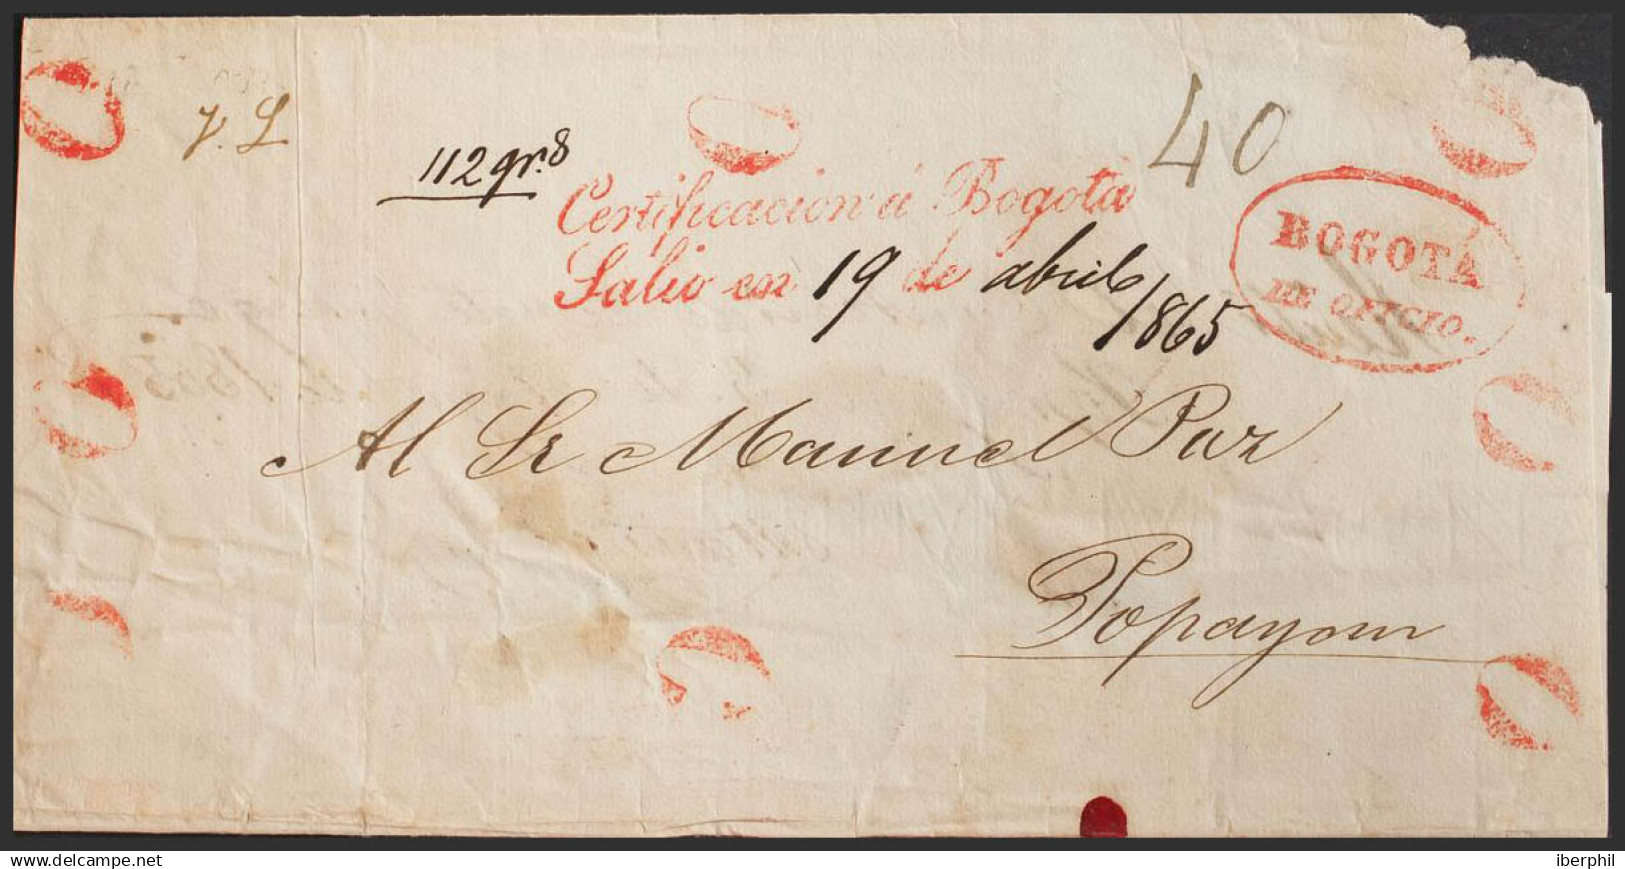 V. L
112 grs
40
Certificacion á Bogotá
Salio en 19 de abril / 1865
BOGOTÁ
DE OFICIO.
Al Sr Manuel Paz
Popayan
www.delcampe.net
iberphil